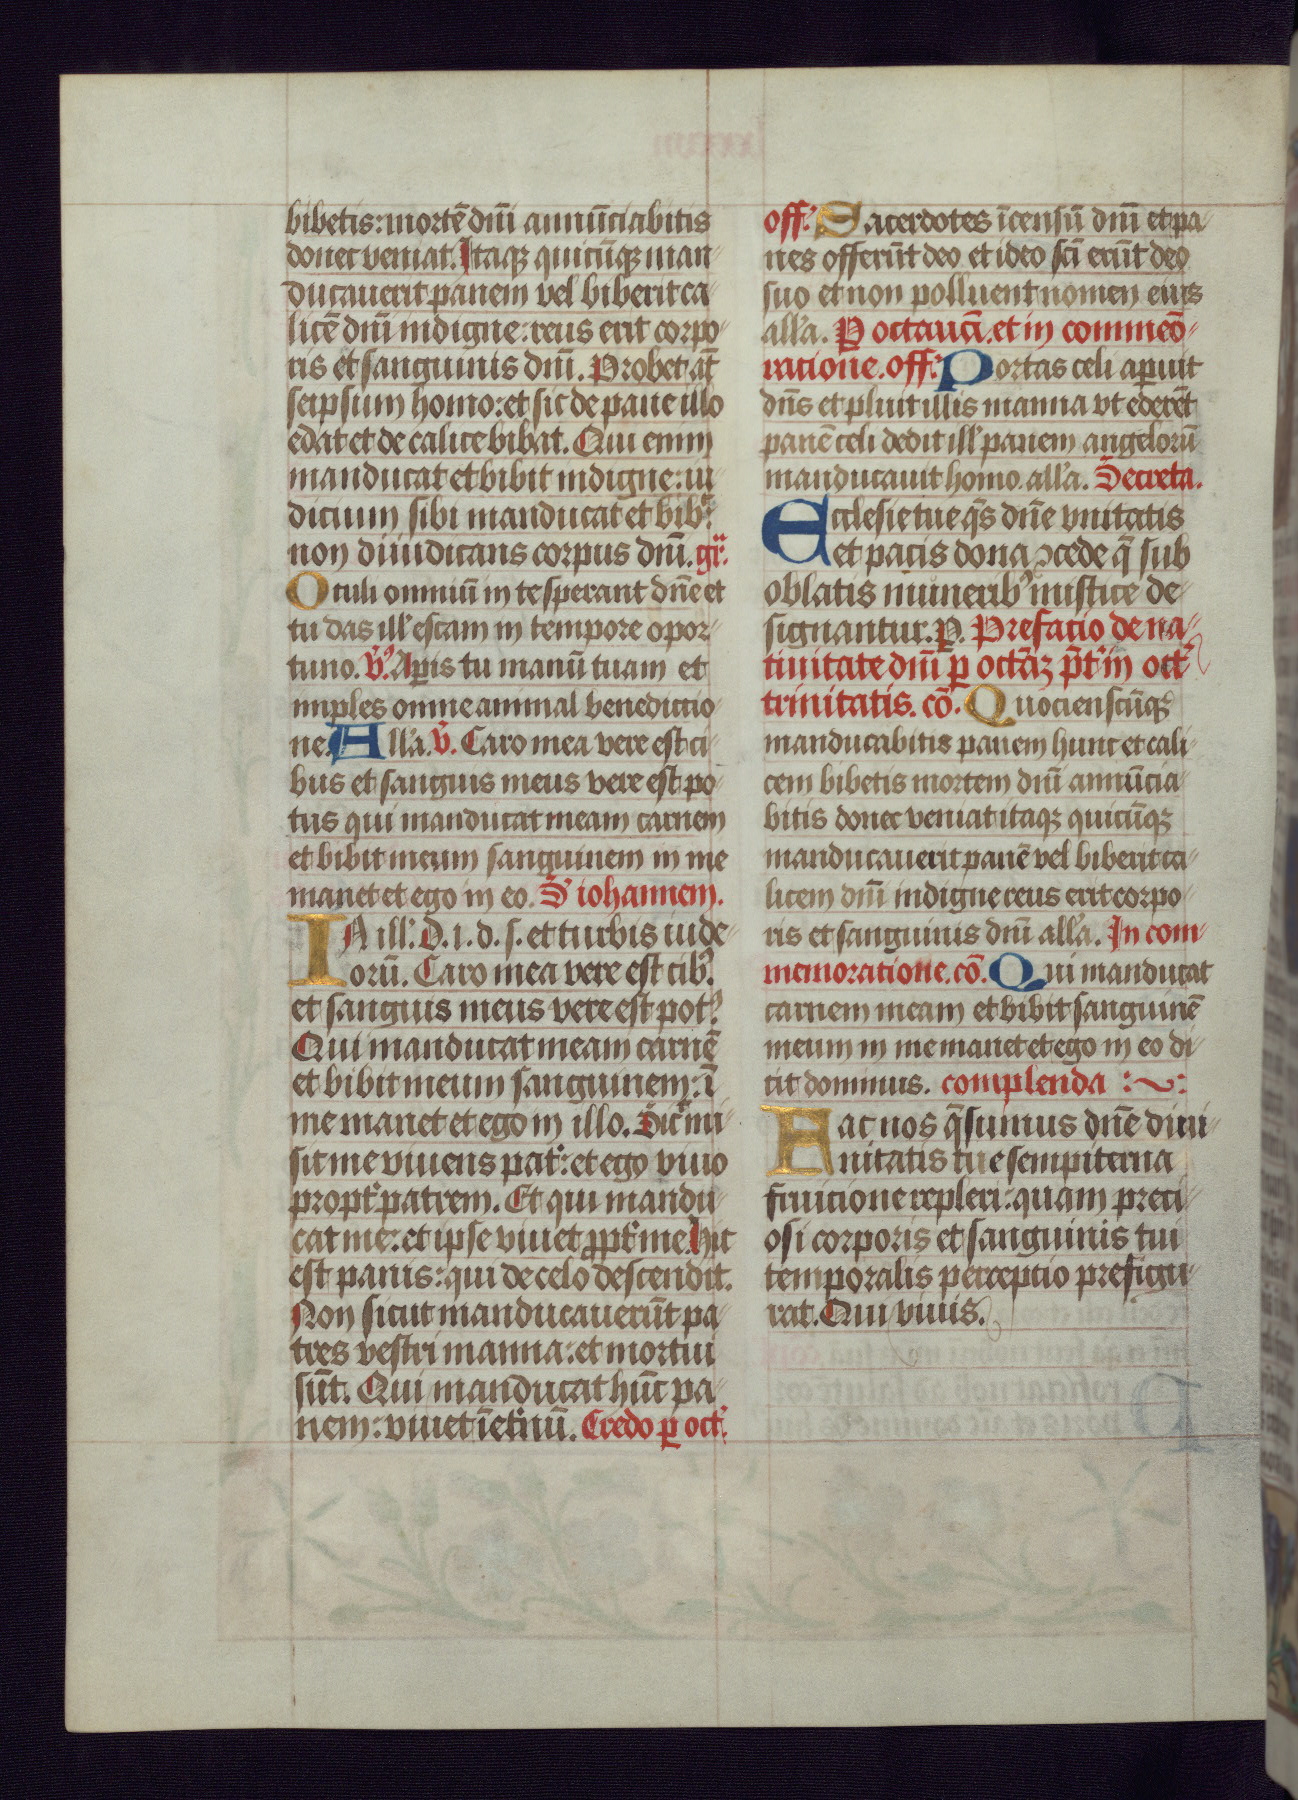 bibetis: mortē dn̄i annūciabitis
donec veniat. Itaqꝫ quicūqꝫ man
ducauerit panem vel biberit ca
licē dn̄i indigne: reus erit corpo
ris et sanguinis dn̄i. Probet at̄
seipsum homo: et sic de pane illo
edat et de calice bibat. Qui enim
manducat et bibit indigne: iu
dicium sibi manducat et bib'
non diiudicans corpus dn̄i. gr̄.
Oculi omniū in te sperant dn̄e et
tu das ill' escam in tempore opor
tuno. V̄. Aꝑis tu manū tuam et
imples omne animal benedictio
ne. All'a. V̄. Caro mea vere est ci
bus et sanguis meus vere est po
tus qui manducat meam carnem
et bibit meum sanguinem in me
manet et ego in eo. S̄ iohannem.
IN ill'. D. i. d. s. et turbis iude
orū. Caro mea vere est cibꝰ
et sanguis meus vere est potꝰ
Qui manducat meam carnē
et bibit meum sanguinem: ī
me manet et ego in illo. Sic' mi
sit me viuens pat': et ego viuo
propt' patrem. Et qui mandu
cat me: et ipse viuet ꝓpt' me. hic
est panis: qui de celo descendit.
Non sicut manducauerūt pa
tres vestri manna: et mortui
sūt. Qui manducat hūc pa
nem: viuet īet'nū. Credo ꝑ oct'.
off'. Sacerdotes īcensū dn̄i et pa
nes offerūt deo et ideo sc̄i erūt deo
suo et non polluent nomen eius
all'a. P octauā. et in commeō
ratione. off'. Portas celi aꝑuit
dn̄s et pluit illis manna vt ederēt
panē celi dedit ill' panem angelorū
manducauit homo. all'a. Secreta.
Ecclesie tue q̄s dn̄e vnitatis
et pacis dona ꝯcede q̄ sub
oblatis munerib' mistice de
signantur. P. Prefatio de na
tiuitate dn̄i ꝑ octāꝫ p̄t' in oct'
trinitatis. cō. Quociensćūqꝫ
manducabitis panem hunc et cali
cem bibetis mortem dn̄i annūcia
bitis donec veniat itaqꝫ quicūqꝫ
manducauerit panē vel biberit ca
licem dn̄i indigne reus erit corpo
ris et sanguinis dn̄i all'a. In com
memoratione. cō. Qui manducat
carnem meam et bibit sanguinē
meum in me manet et ego in eo di
cit dominus. complenda :~:
Fac nos q̄sumus dn̄e diui
nitatis tue sempiterna
fruicione repleri: quam preci
osi corporis et sanguinis tui
temporalis perceptio prefigu
rat. Qui viuis.